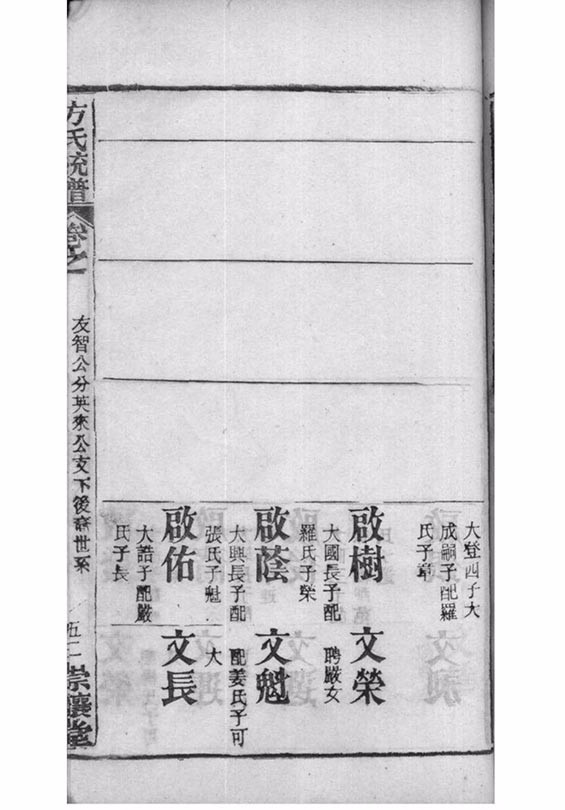 大登四子大
成嗣子配羅
氏子章
啟樹
大國長子配
羅氏子榮
文榮
聘嚴女
啟蔭
大興長子配
張氏子魁
文魁
配姜氏子可
大
啟佑
大誥子配嚴
氏子長
文長
方氏統譜
卷之一
友智公分英來公支下後裔世系
五二
堂